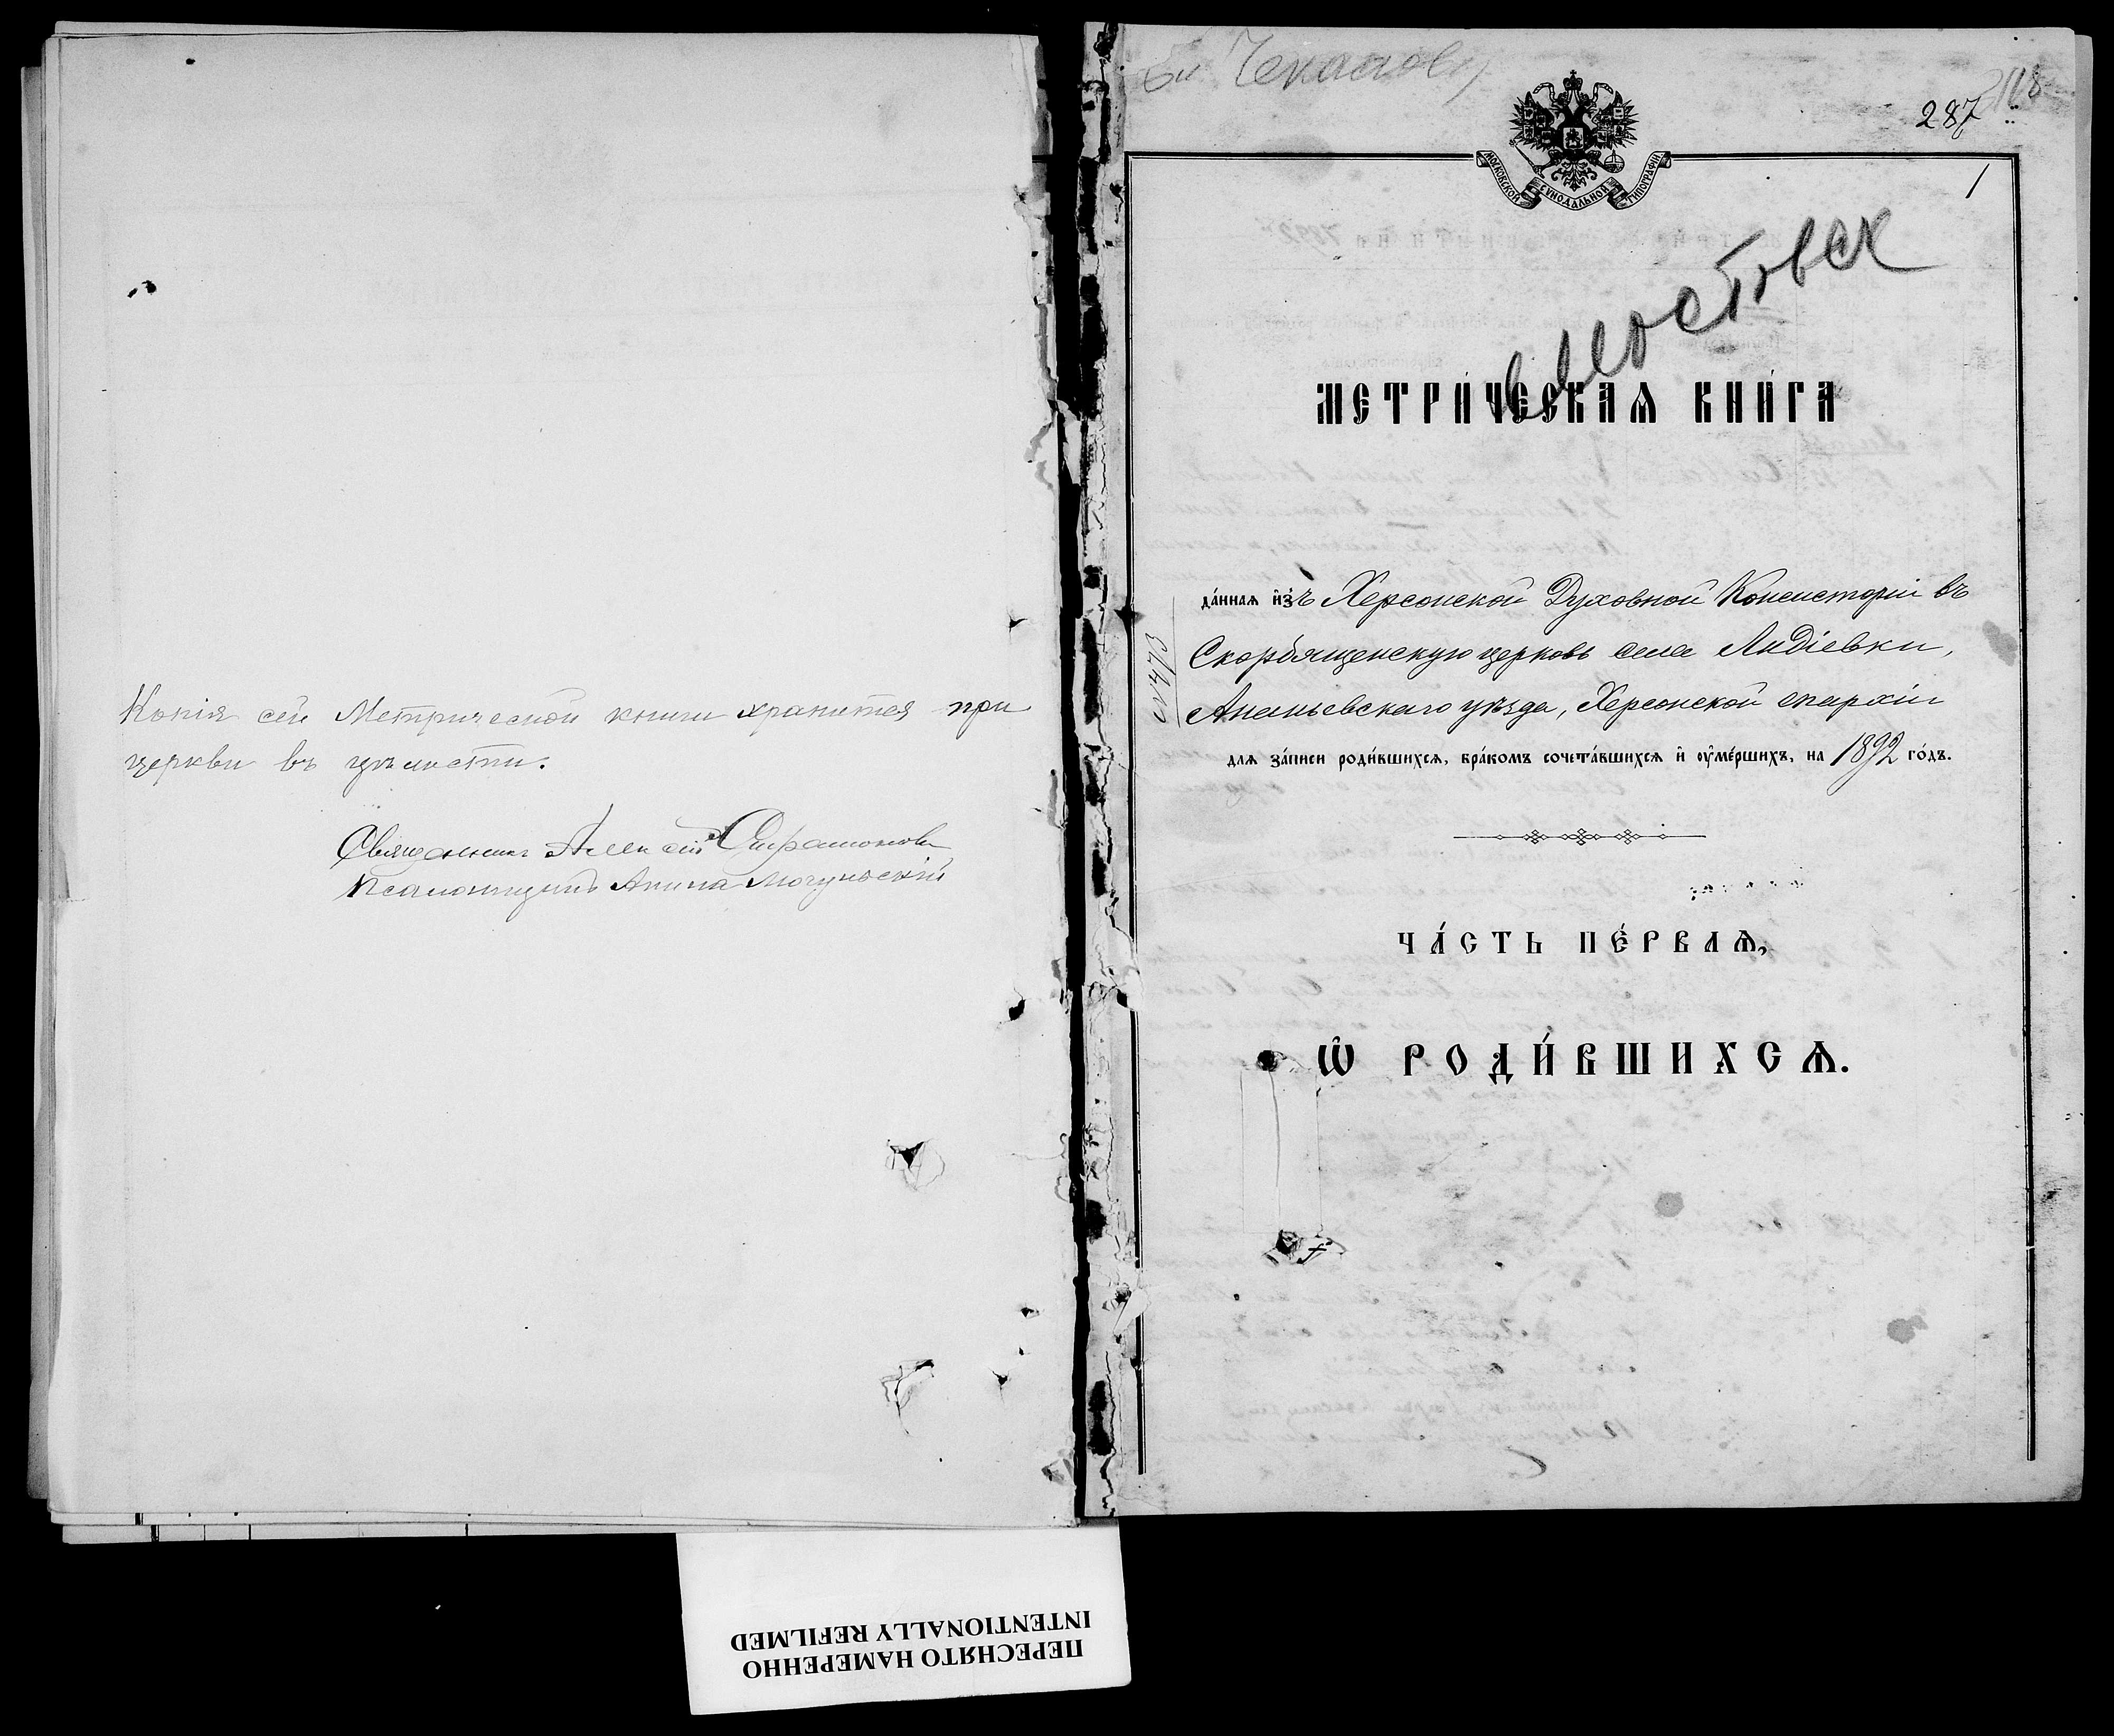 Копія сей Метрической книги хранится при
церкви въ цѣлости.
Священникъ Алексій
Псаломщикъ
287
1
МОСКОВСКОЙ СѴНОДАЛЬНОЙ ТИПОГРАФІИ
МЕТРИ́ЧЕСКАѦ КНИ́ГА
да́ннаѧ и҆з̾ъ Херсонской Духовной Консисторіи въ
Скорбященскую церковь села Лидіевки,
Ананьевскаго уѣзда, Херсонской епархіи
№ 473
длѧ за́писи роди́вшихсѧ, бра́комъ сочета́вшихсѧ и҆ ᲂу҆ме́ршихъ, на 1892 го́дъ.
ЧА́СТЬ ПЕ́РВАѦ,
Ѽ РОДИ́ВШИХСѦ.
ПЕРЕСНЯТО НАМЕРЕННО
INTENTIONALLY REFILMED